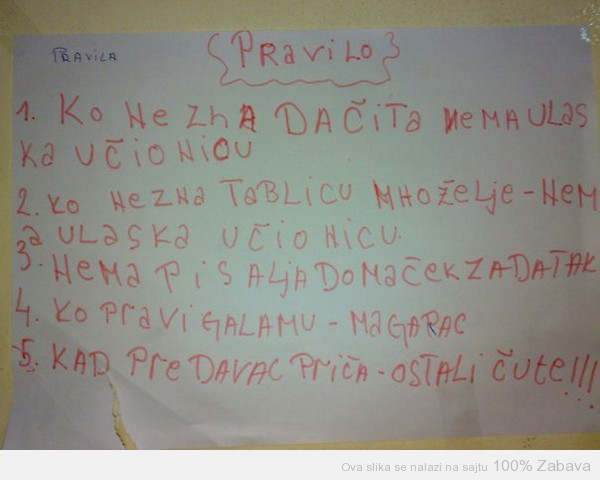 PRAVILA
PRaViLO
1. Ko He ZhA DAČiTa HeMAULaS
Ka UČiOHiOU
2. Ko HeZHa TaBLiCU MHOŽeLje - HeM
a ULaSKa UČiOHiCU.
3. HeMa PiSALjA DOMAČEK ZADATAK
4. Ko PraVi GALAMU - MaGARAC
5. KAD PreDAVAC PriČA - OSTALi ČUTe!!!
Ova slika se nalazi na sajtu 100% Zabava